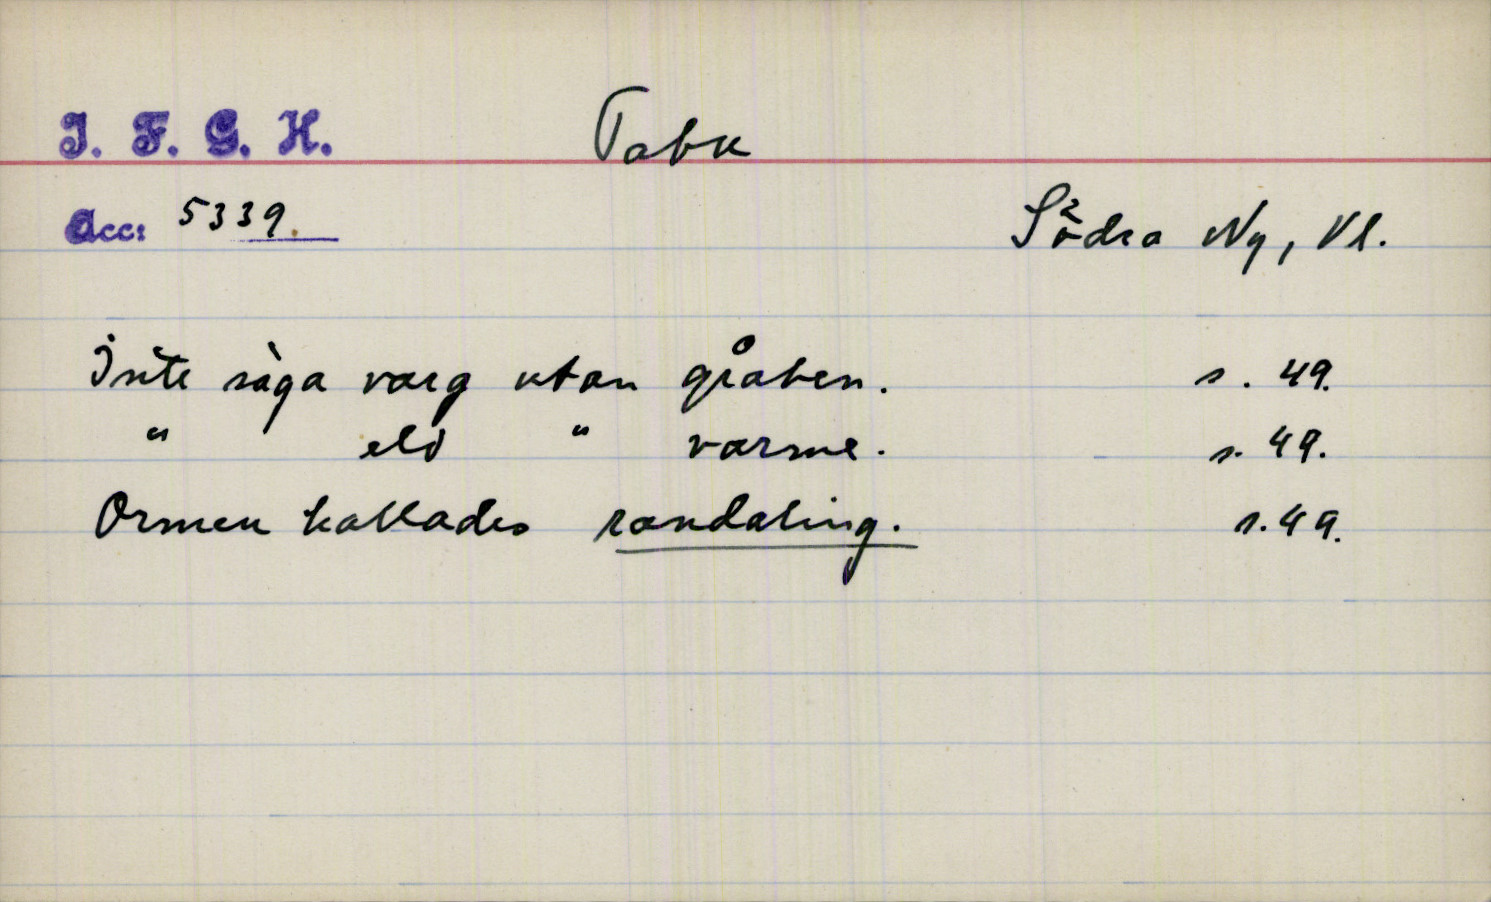 I. F. G. H.
Tabu
Acc: 5339.
Södra Ny, Vl.
Inte säga varg utan gråben. s. 49.
" eld " varme. s. 49.
Ormen kallades randaling. s. 49.